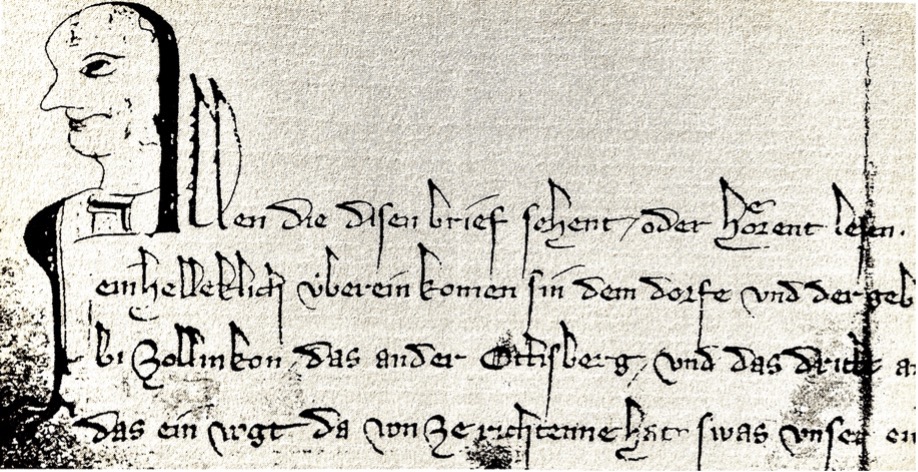 Allen die disen brief sehent / oder hoͤrent lesen.
einhelleklich úberein komen sin dem dorfe vnd der geb
bi Zollinkon / das ander Ottisberg / vnd das dritte a
das ein vogt da von ze richtenne hat swas vnser ei